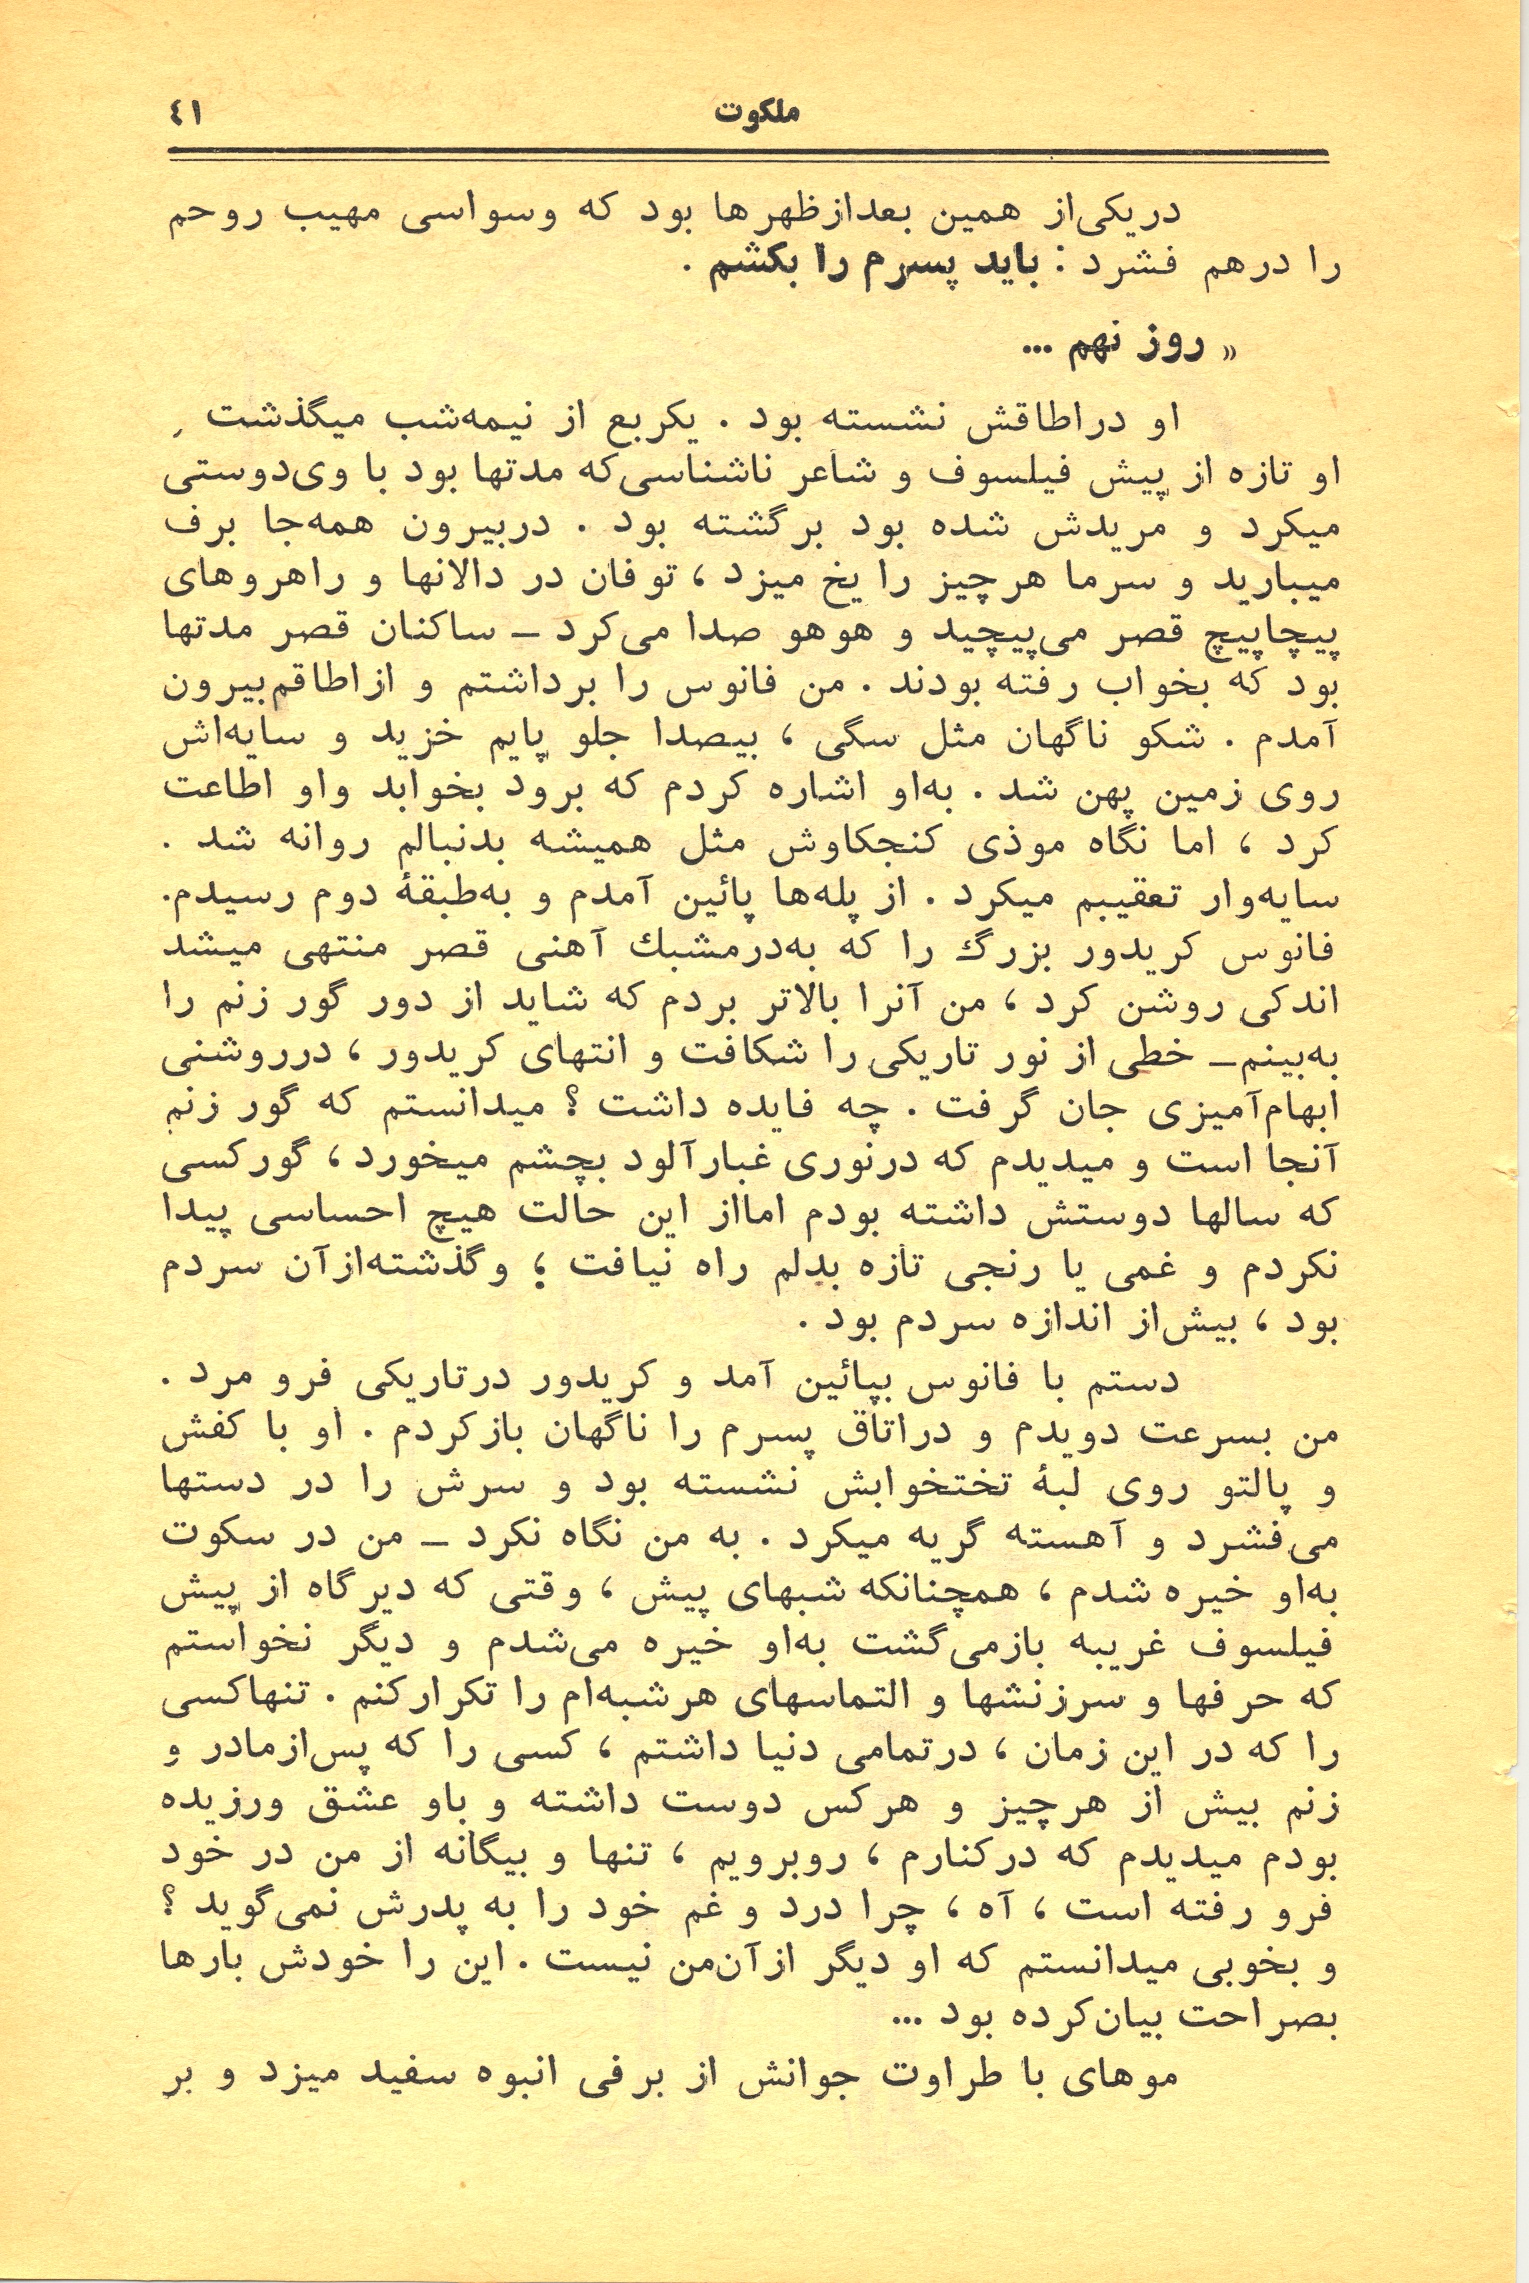 ملکوت ٤١
دریکی‌از همین بعدازظهرها بود که وسواسی مهیب روحم
را درهم فشرد : باید پسرم را بکشم .
« روز نهم ...
او دراطاقش نشسته بود . یکربع از نیمه‌شب میگذشت .
او تازه از پیش فیلسوف و شاعر ناشناسی‌که مدتها بود با وی‌دوستی
میکرد و مریدش شده بود برگشته بود . دربیرون همه‌جا برف
میبارید و سرما هرچیز را یخ میزد ، توفان در دالانها و راهروهای
پیچاپیچ قصر می‌پیچید و هوهو صدا می‌کرد ـ ساکنان قصر مدتها
بود که بخواب رفته بودند . من فانوس را برداشتم و ازاطاقم‌بیرون
آمدم . شکو ناگهان مثل سگی ، بیصدا جلو پایم خزید و سایه‌اش
روی زمین پهن شد . به‌او اشاره کردم که برود بخوابد واو اطاعت
کرد ، اما نگاه موذی کنجکاوش مثل همیشه بدنبالم روانه شد .
سایه‌وار تعقیبم میکرد . از پله‌ها پائین آمدم و به‌طبقهٔ دوم رسیدم.
فانوس کریدور بزرگ را که به‌درمشبك آهنی قصر منتهی میشد
اندکی روشن کرد ، من آنرا بالاتر بردم که شاید از دور گور زنم را
به‌بینم ـ خطی از نور تاریکی را شکافت و انتهای کریدور ، درروشنی
ابهام‌آمیزی جان گرفت . چه فایده داشت ؟ میدانستم که گور زنم
آنجا است و میدیدم که درنوری غبارآلود بچشم میخورد ، گورکسی
که سالها دوستش داشته بودم امااز این حالت هیچ احساسی پیدا
نکردم و غمی یا رنجی تازه بدلم راه نیافت ؛ وگذشته‌ازآن سردم
بود ، بیش‌از اندازه سردم بود .
دستم با فانوس بپائین آمد و کریدور درتاریکی فرو مرد .
من بسرعت دویدم و دراتاق پسرم را ناگهان بازکردم . او با کفش
و پالتو روی لبهٔ تختخوابش نشسته بود و سرش را در دستها
می‌فشرد و آهسته گریه میکرد . به من نگاه نکرد ـ من در سکوت
به‌او خیره شدم ، همچنانکه شبهای پیش ، وقتی که دیرگاه از پیش
فیلسوف غریبه بازمی‌گشت به‌او خیره می‌شدم و دیگر نخواستم
که حرفها و سرزنشها و التماسهای هرشبه‌ام را تکرارکنم . تنهاکسی
را که در این زمان ، درتمامی دنیا داشتم ، کسی را که پس‌ازمادر و
زنم بیش از هرچیز و هرکس دوست داشته و باو عشق ورزیده
بودم میدیدم که درکنارم ، روبرویم ، تنها و بیگانه از من در خود
فرو رفته است ، آه ، چرا درد و غم خود را به پدرش نمی‌گوید ؟
و بخوبی میدانستم که او دیگر ازآن‌من نیست . این را خودش بارها
بصراحت بیان‌کرده بود ...
موهای با طراوت جوانش از برفی انبوه سفید میزد و بر